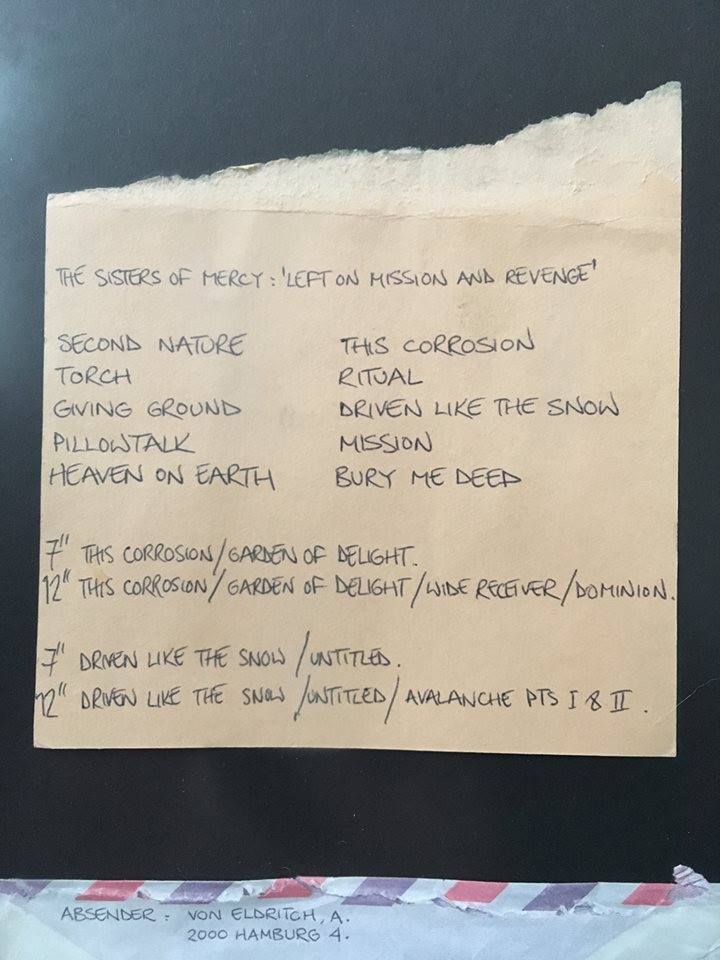 THE SISTERS OF MERCY : 'LEFT ON MISSION AND REVENGE'
SECOND NATURE
TORCH
GIVING GROUND
PILLOWTALK
HEAVEN ON EARTH
THIS CORROSION
RITUAL
DRIVEN LIKE THE SNOW
MISSION
BURY ME DEEP
7" THIS CORROSION/GARDEN OF DELIGHT.
12" THIS CORROSION/GARDEN OF DELIGHT/WIDE RECEIVER/DOMINION.
7" DRIVEN LIKE THE SNOW/UNTITLED.
12" DRIVEN LIKE THE SNOW/UNTITLED/AVALANCHE PTS I & II.
ABSENDER : VON ELDRITCH, A.
2000 HAMBURG 4.